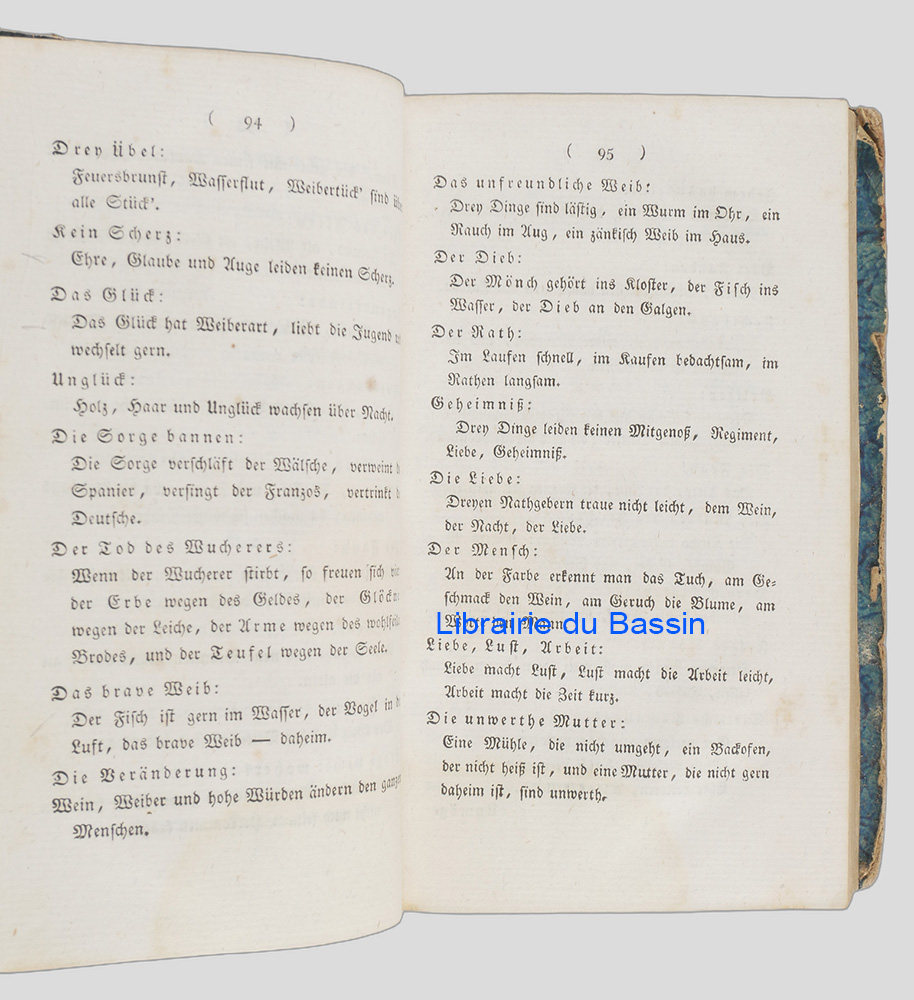 ( 94 )
Drey Übel:
Feuersbrunst, Wasserflut, Weibertück' sind
alle Stück'.
Kein Scherz:
Ehre, Glaube und Auge leiden keinen Scherz.
Das Glück:
Das Glück hat Weiberart, liebt die Jugend
wechselt gern.
Unglück:
Holz, Haar und Unglück wachsen über Nacht.
Die Sorge bannen:
Die Sorge verschläft der Wälsche, verweint
Spanier, versingt der Franzos, vertrinkt
Deutsche.
Der Tod des Wucherers:
Wenn der Wucherer stirbt, so freuen sich
der Erbe wegen des Geldes, der
wegen der Leiche, der Arme wegen des
Brodes, und der Teufel wegen der Seele.
Das brave Weib:
Der Fisch ist gern im Wasser, der Vogel in
Luft, das brave Weib — daheim.
Die Veränderung:
Wein, Weiber und hohe Würden ändern den ganzen
Menschen.
( 95 )
Das unfreundliche Weib:
Drey Dinge sind lästig, ein Wurm im Ohr, ein
Rauch im Aug, ein zänkisch Weib im Haus.
Der Dieb:
Der Mönch gehört ins Kloster, der Fisch ins
Wasser, der Dieb an den Galgen.
Der Rath:
Im Laufen schnell, im Kaufen bedachtsam, im
Rathen langsam.
Geheimniß:
Drey Dinge leiden keinen Mitgenoß, Regiment,
Liebe, Geheimniß.
Die Liebe:
Dreyen Rathgebern traue nicht leicht, dem Wein,
der Nacht, der Liebe.
Der Mensch:
An der Farbe erkennt man das Tuch, am Ge-
schmack den Wein, am Geruch die Blume, am
Librairie du Bassin
Liebe, Lust, Arbeit:
Liebe macht Lust, Lust macht die Arbeit leicht,
Arbeit macht die Zeit kurz.
Die unwerthe Mutter:
Eine Mühle, die nicht umgeht, ein Backofen,
der nicht heiß ist, und eine Mutter, die nicht gern
daheim ist, sind unwerth.